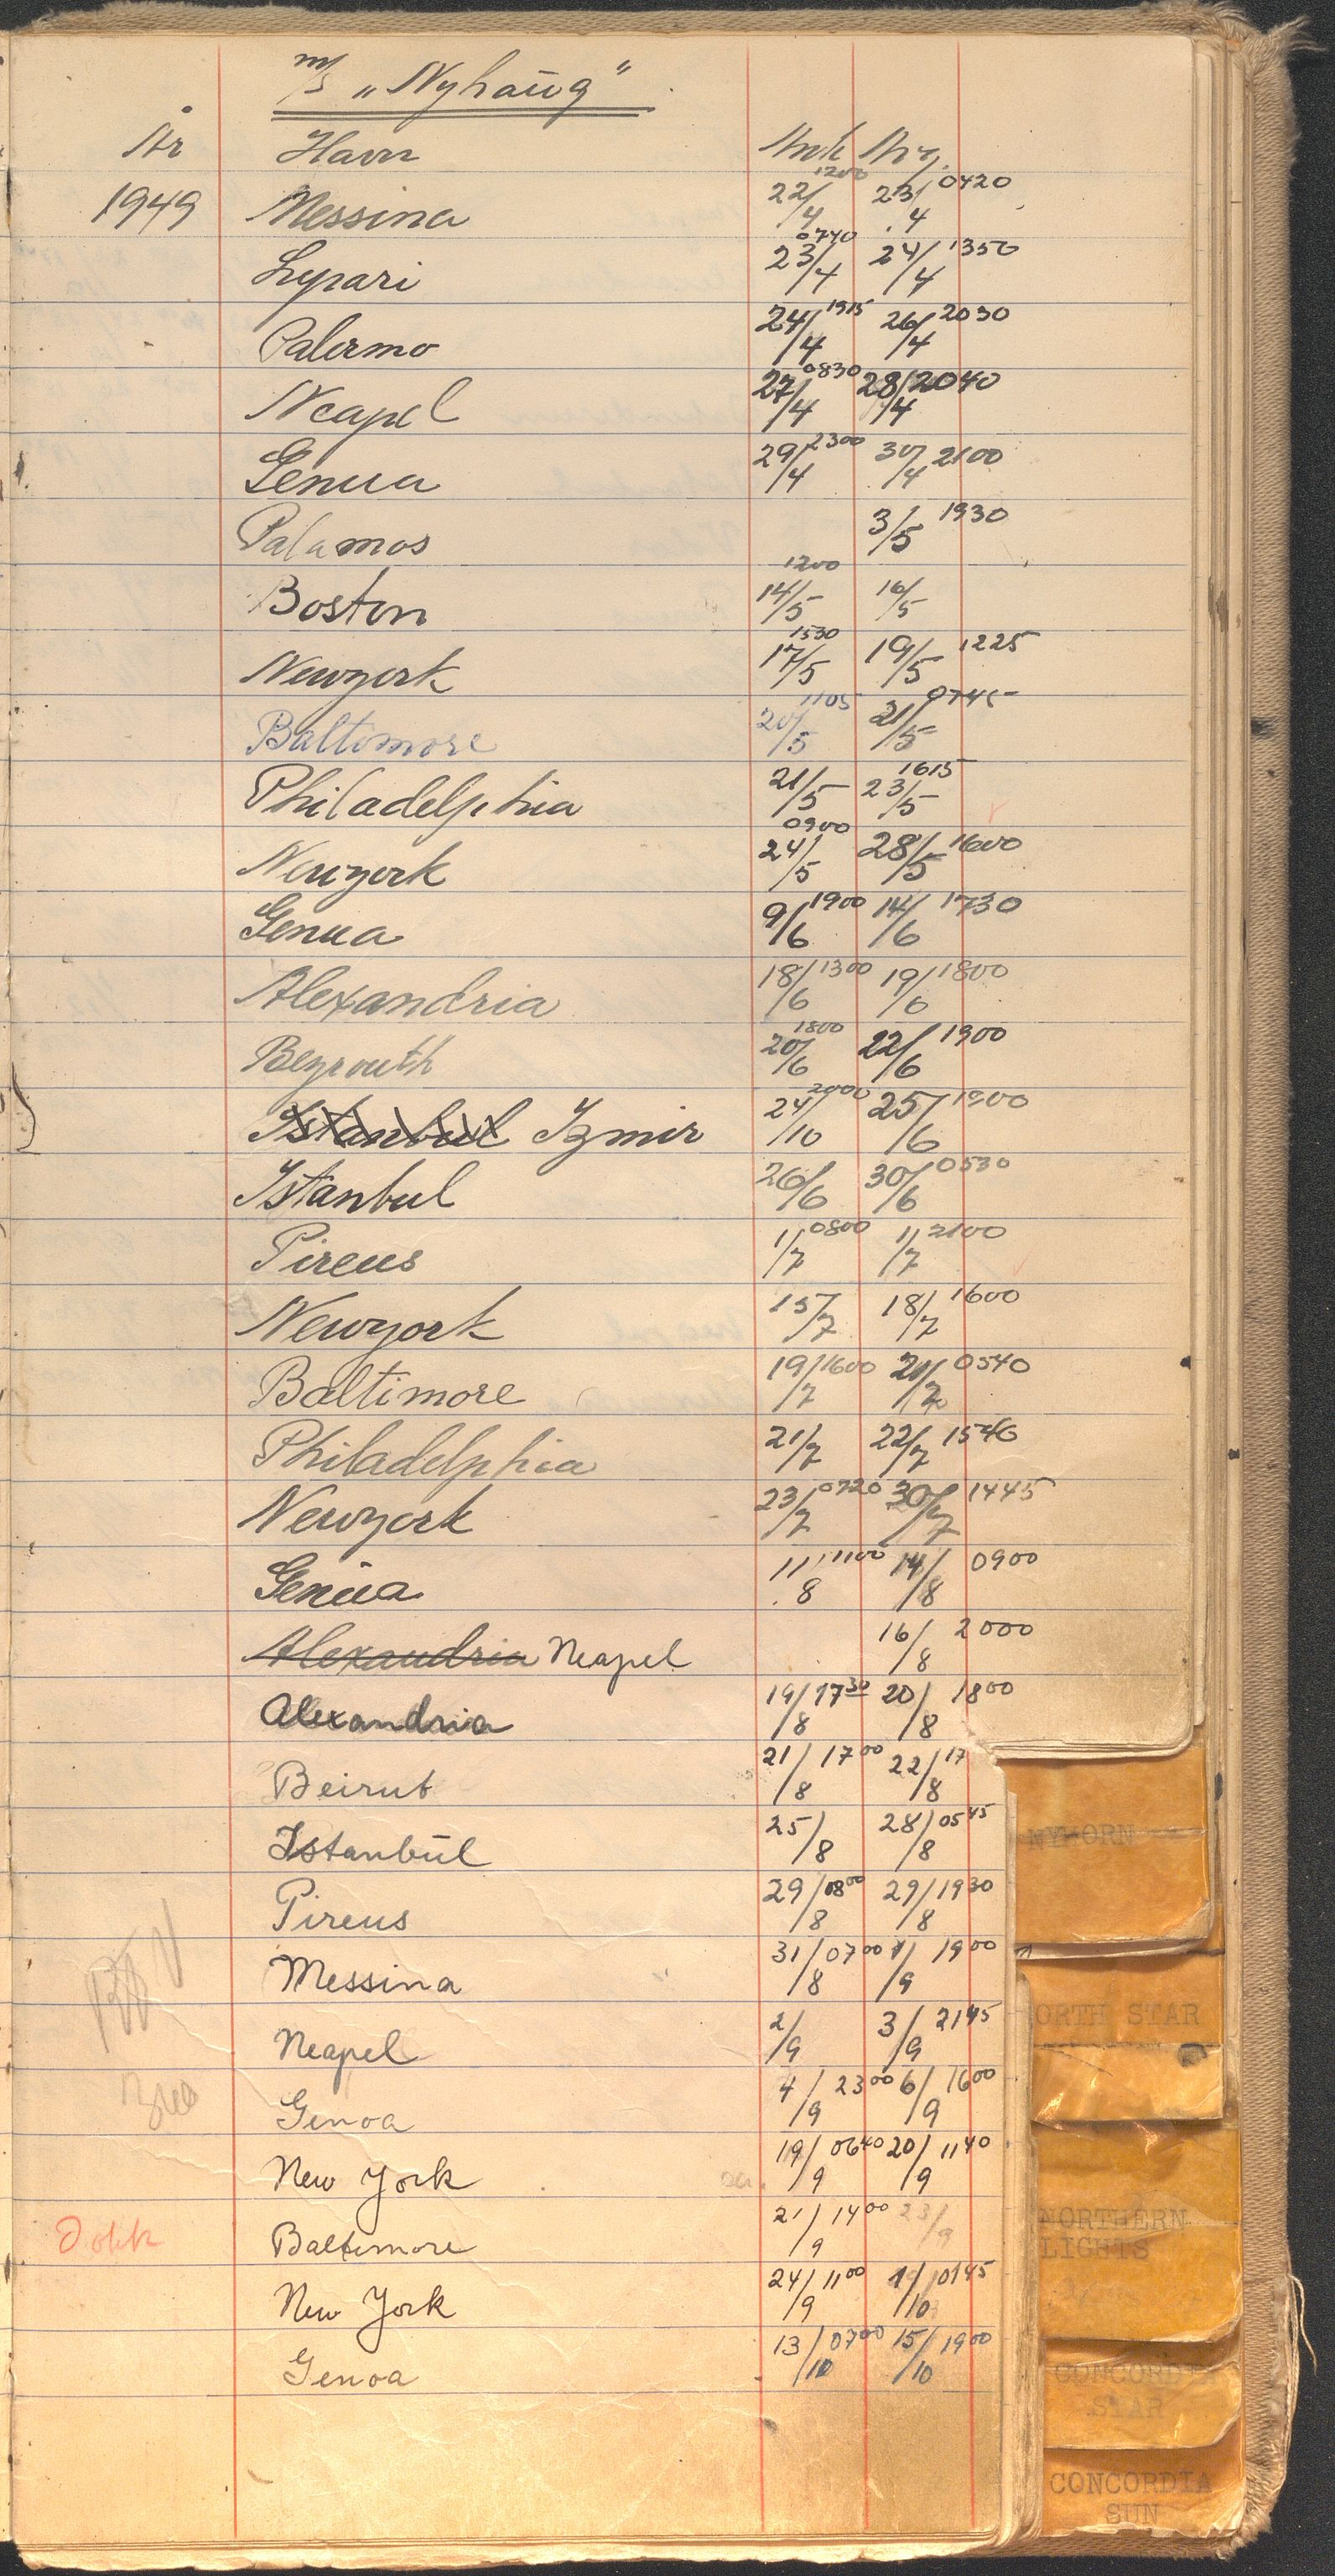 m/s „Nyhaug"
År Havn Ank Avg.
1949 Messina 22/4 1200 23/4 0420
Lypari 23/4 0740 24/4 1350
Palermo 24/4 1915 26/4 2030
Neapel 27/4 0830 28/4 2040
Genua 29/4 2300 30/4 2100
Palamos 3/5 1930
Boston 14/5 1200 16/5
Newyork 17/5 1530 19/5 1225
Baltimore 20/5 1105 21/5 0745
Philadelphia 21/5 23/5 1615
Newyork 24/5 0900 28/5 1600
Genua 9/6 1900 14/6 1730
Alexandria 18/6 1300 19/6 1800
Beyrouth 20/6 1800 22/6 1900
Istanbul Izmir 24/10 2000 25/6 1900
Istanbul 26/6 30/6 0530
Pireus 1/7 0800 1/7 2100
Newyork 15/7 18/7 1600
Baltimore 19/7 1600 21/7 0540
Philadelphia 21/7 22/7 1546
Newyork 23/7 0720 30/7 1445
Genua 11/8 1100 14/8 0900
Alexandria Neapel 16/8 2000
Alexandria 19/8 1730 20/8 1800
Beirut 21/8 1700 22/8 17
Istanbul 25/8 28/8 0545
Pireus 29/8 0800 29/8 1930
Messina 31/8 0700 1/9 1900
Neapel 2/9 3/9 2145
Genoa 4/9 2300 6/9 1600
New York 19/9 0640 20/9 1140
Baltimore 21/9 1400 23/9
Dokk
New York 24/9 1100 1/10 0145
Genoa 13/10 0700 15/10 1900
NYHORN
ORTH STAR
NORTHERN
LIGHTS
CONCORDI
STAR
CONCORDIA
SUN